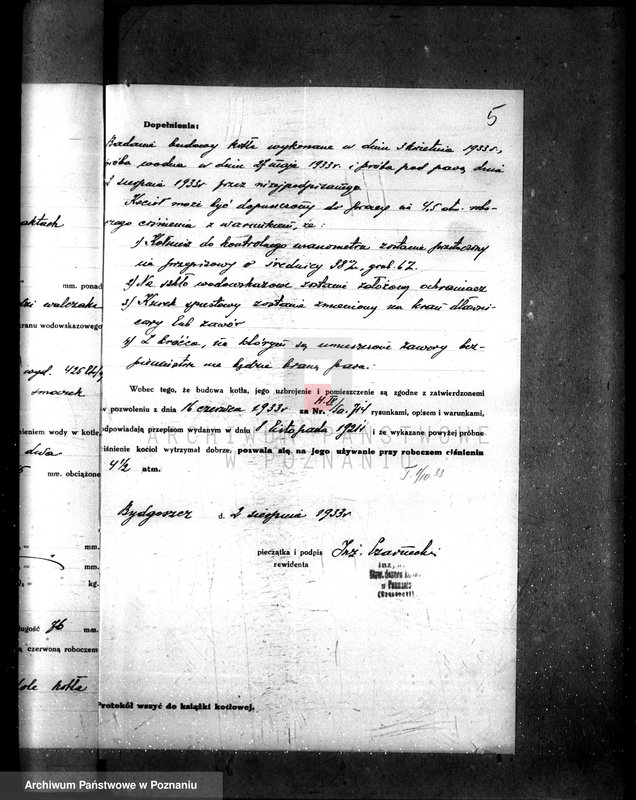 5
Dopełnienia:
Badanie budowy kotła wykonane w dniu 3 kwietnia 1933 r.,
próba wodna w dniu 27 maja 1933 r. i próba pod parą dnia
2 sierpnia 1933 r. przez niżejpodpisanego.
Kocioł może być dopuszczony do pracy na 4,5 atm. robo-
czego ciśnienia z warunkiem, że:
1) Kołnierz do kontrolnego manometra zostanie przetoczony
na przepisowy o średnicy 38 , grub. 6
2) Na szkło wodowskazowe zostanie założony ochraniacz
3) Kurek spustowy zostanie zmieniony na kran dławni-
cowy lub zawór
4) Z króćca, na którym są umieszczone zawory bez-
pieczeństwa nie będzie braną para.
Wobec tego, że budowa kotła, jego uzbrojenie i pomieszczenie są zgodne z zatwierdzonemi
w pozwoleniu z dnia 16 czerwca 1933 r. za Nr. rysunkami, opisem i warunkami,
odpowiadają przepisom wydanym w dniu 8 listopada 1921 i że wykazane powyżej próbne
ciśnienie kocioł wytrzymał dobrze, pozwala się na jego używanie przy roboczem ciśnieniu
4 1/2 atm.
Bydgoszcz d. 2 sierpnia 1933 r
pieczątka i podpis Inż.
rewidenta
inż.
Stow. Dozoru
w Poznaniu
Protokół wszyć do książki kotłowej.
aktach
mm. ponad
walczaka
kranu wodowskazowego
wyd. 425
smoczek
wody w kotle,
dwa
mm. obciążone
mm.
mm.
kg.
długość 76 mm.
czerwoną roboczem
kotła
ARCHIWUM PAŃSTWOWE
W POZNANIU
Archiwum Państwowe w Poznaniu